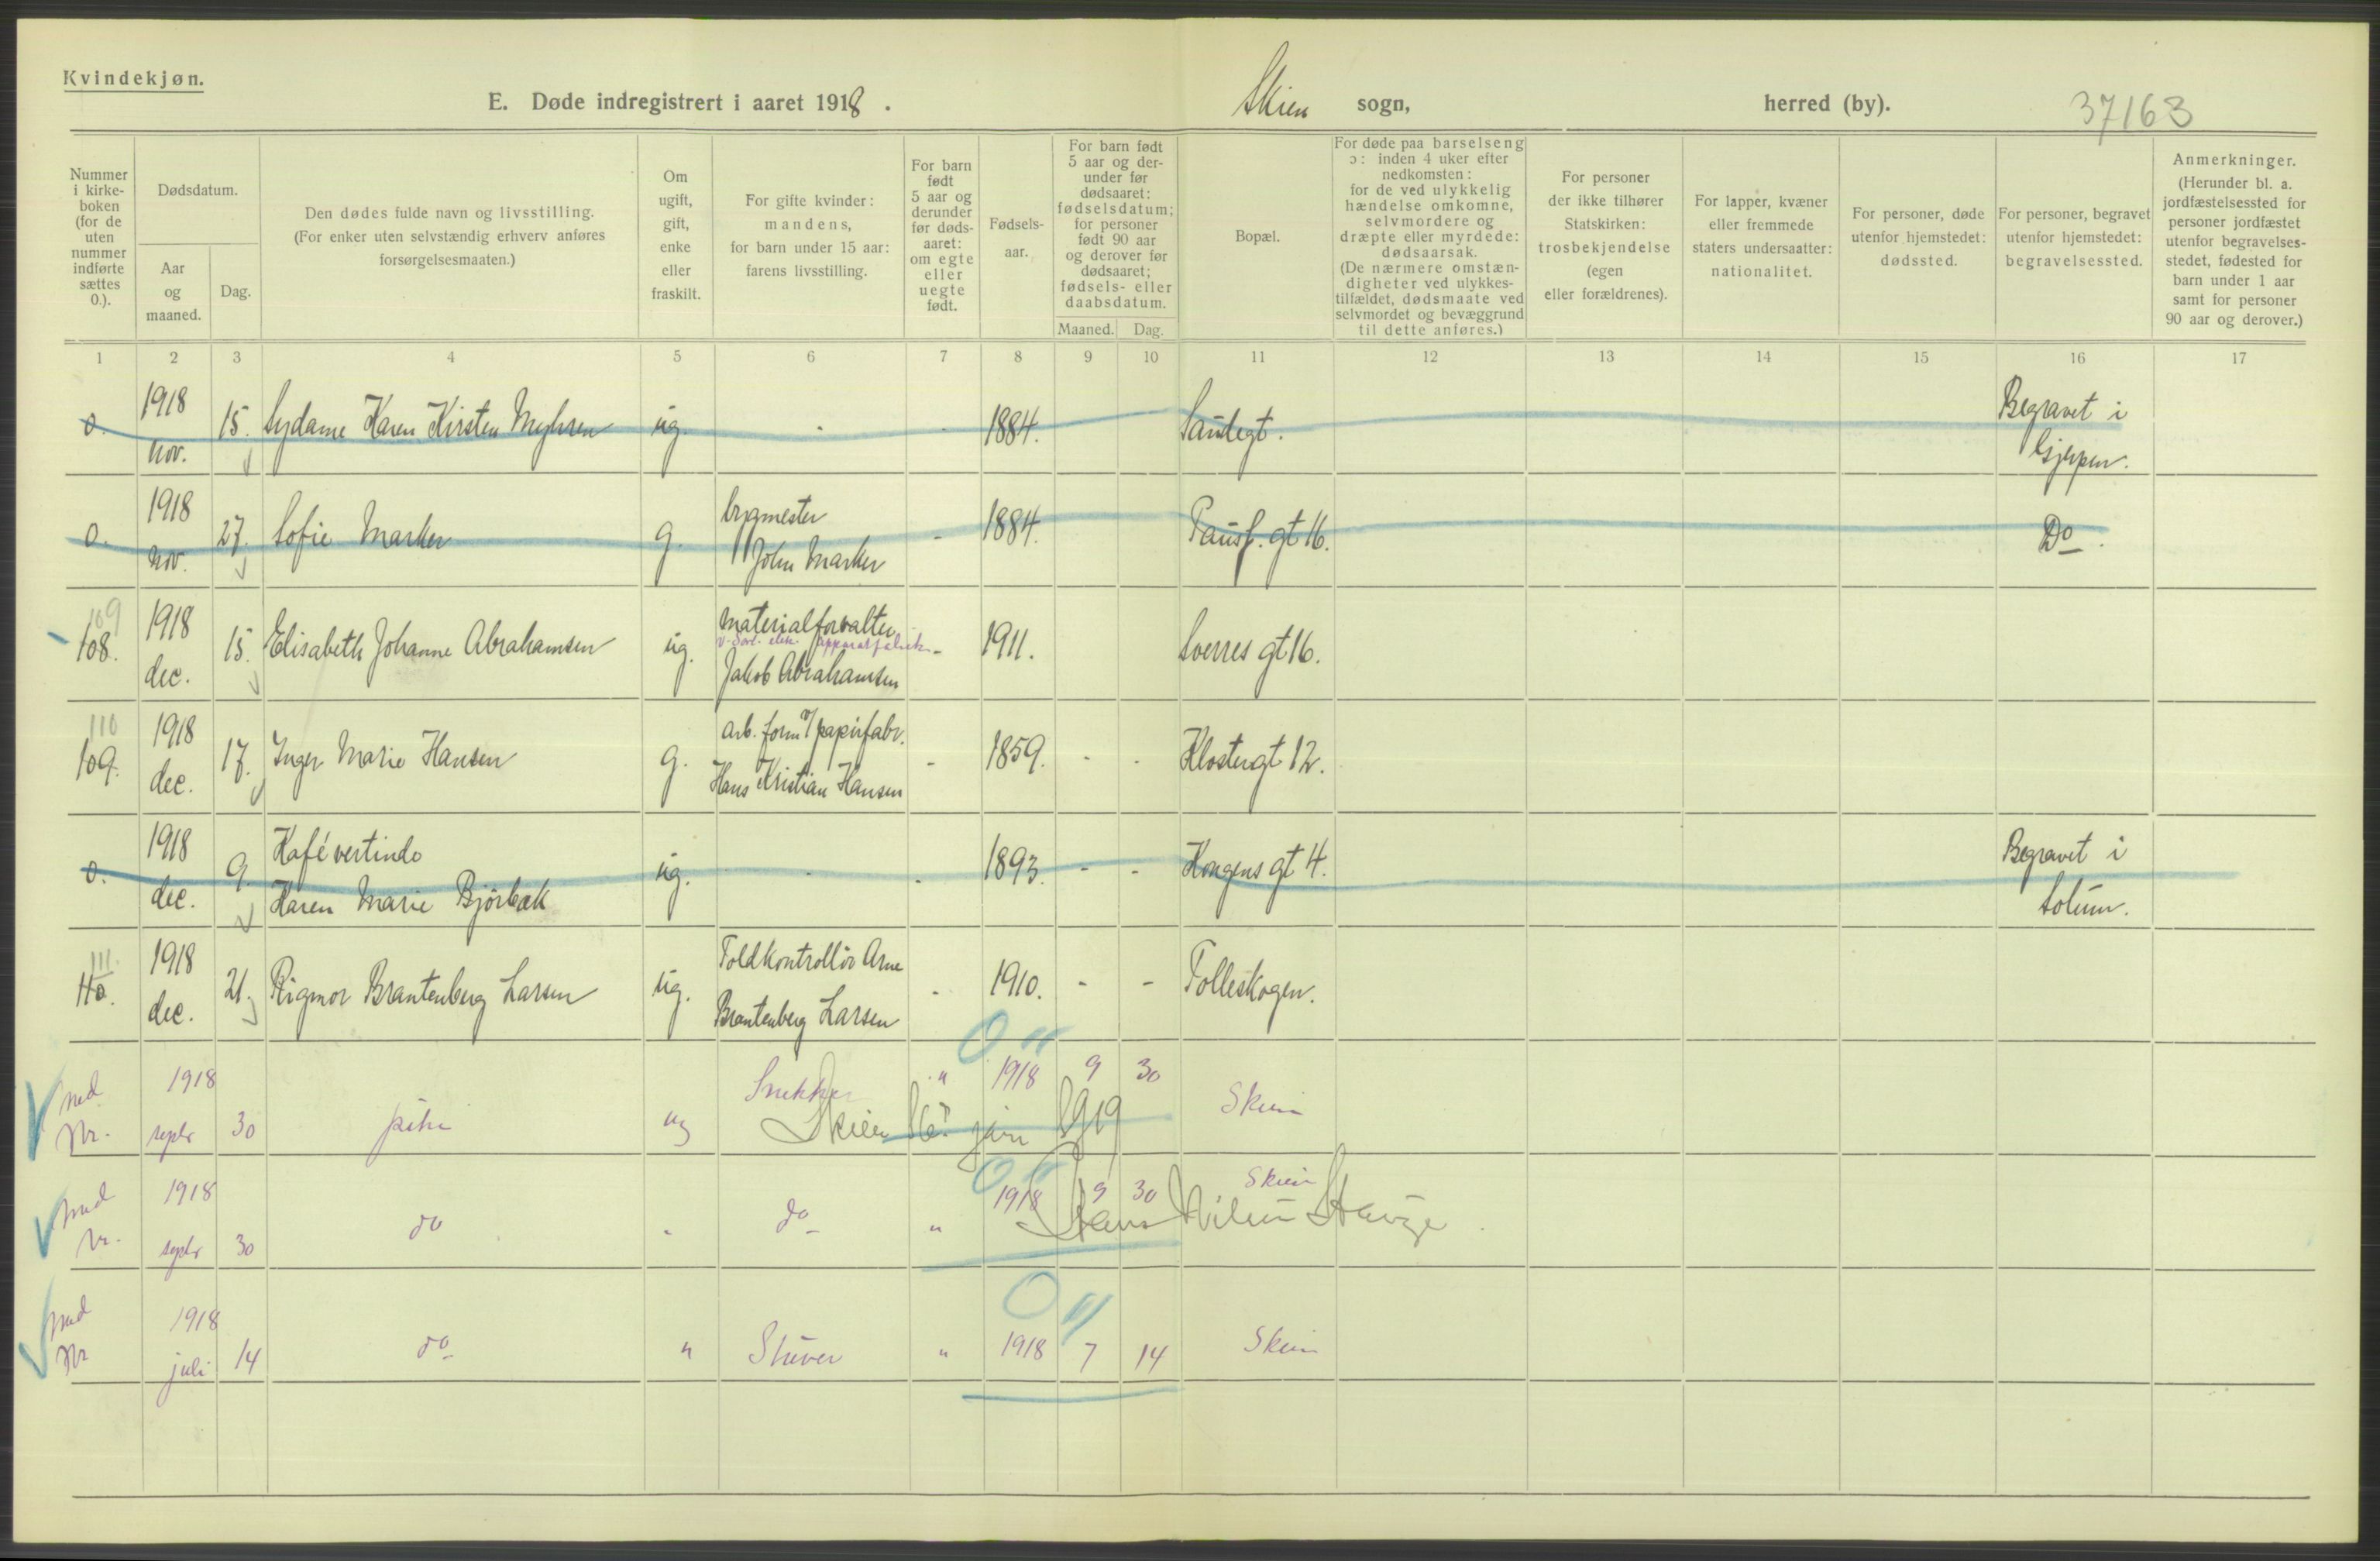 Kvindekjøn.
E. Døde indregistrert i aaret 1918 . Skien sogn, herred (by). 37163
Nummer i kirke-boken (for de uten nummer indførte sættes 0.).
Dødsdatum.
Aar og maaned.
Dag.
Den dødes fulde navn og livsstilling.
(For enker uten selvstændig erhverv anføres
forsørgelsesmaaten.)
Om ugift, gift, enke eller fraskilt.
For gifte kvinder: mandens, for barn under 15 aar: farens livsstilling.
For barn født 5 aar og derunder før døds-aaret: om egte eller uegte født.
Fødsels-aar.
For barn født 5 aar og der-under før dødsaaret: fødselsdatum; for personer født 90 aar og derover før dødsaaret; fødsels- eller daabsdatum.
Maaned. Dag.
Bopæl.
For døde paa barselseng ɔ: inden 4 uker efter nedkomsten: for de ved ulykkelig hændelse omkomne, selvmordere og dræpte eller myrdede: dødsaarsak. (De nærmere omstæn-digheter ved ulykkes-tilfældet, dødsmaate ved selvmordet og bevæggrund til dette anføres.)
For personer der ikke tilhører Statskirken: trosbekjendelse (egen eller forældrenes).
For lapper, kvæner eller fremmede staters undersaatter: nationalitet.
For personer, døde utenfor hjemstedet: dødssted.
For personer, begravet utenfor hjemstedet: begravelsessted.
Anmerkninger. (Herunder bl. a. jordfæstelsessted for personer jordfæstet utenfor begravelses-stedet, fødested for barn under 1 aar samt for personer 90 aar og derover.)
1 2 3 4 5 6 7 8 9 10 11 12 13 14 15 16 17
0. 1918 nov. 15. Sydame Karen Kirsten Myhren ug. - - 1884. Saudegt. Begravet i Gjerpen.
0. 1918 nov. 27. Sofie Marker g. brygmester John Marker - 1884. Pausf. gt 16. Do.
109
108. 1918 dec. 15. Elisabeth Johanne Abrahamsen ug. Materialforvalter apparatfabrik Jakob Abrahamsen - 1911. Sverres gt 16.
110
109. 1918 dec. 17. Inger Marie Hansen g. arb. form v/ papirfabr. Hans Kristian Hansen - 1859. - - Klostergt 12.
0. 1918 dec. 9. Kafévertinde Karen Marie Bjørbæk ug. - - 1893. - - Kongens gt 4. Begravet i Solum.
111.
110. 1918 dec. 21. Rigmor Brantenberg Larsen ug. Toldkontrollør Arne Brantenberg Larsen - 1910. - - Folleskogen.
ned Nr. 1918 septr 30 pike ug Snekker " 1918 9 30 Skien
Skien juni 1919
ned Nr. 1918 septr 30 do - do " 1918 9 30 Skien
Hans
ned Nr 1918 juli 14 do " Stuver " 1918 7 14 Skien